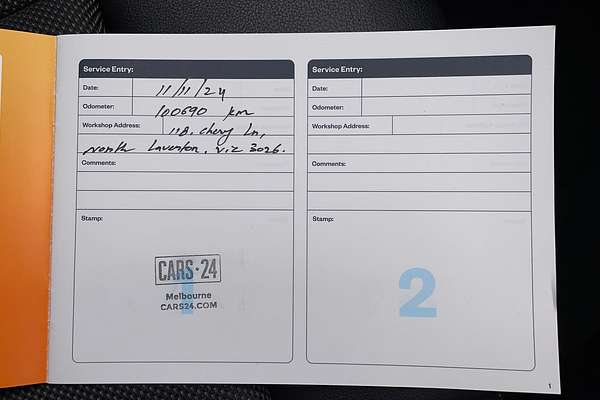 Service Entry:
Date: 11/11/24
Odometer: 100690 km
Workshop Address: 118, cherry Ln,
North Laverton, Vic 3026.
Comments:
Stamp:
CARS·24
Melbourne
CARS24.COM
1
Service Entry:
Date:
Odometer:
Workshop Address:
Comments:
Stamp:
2
1